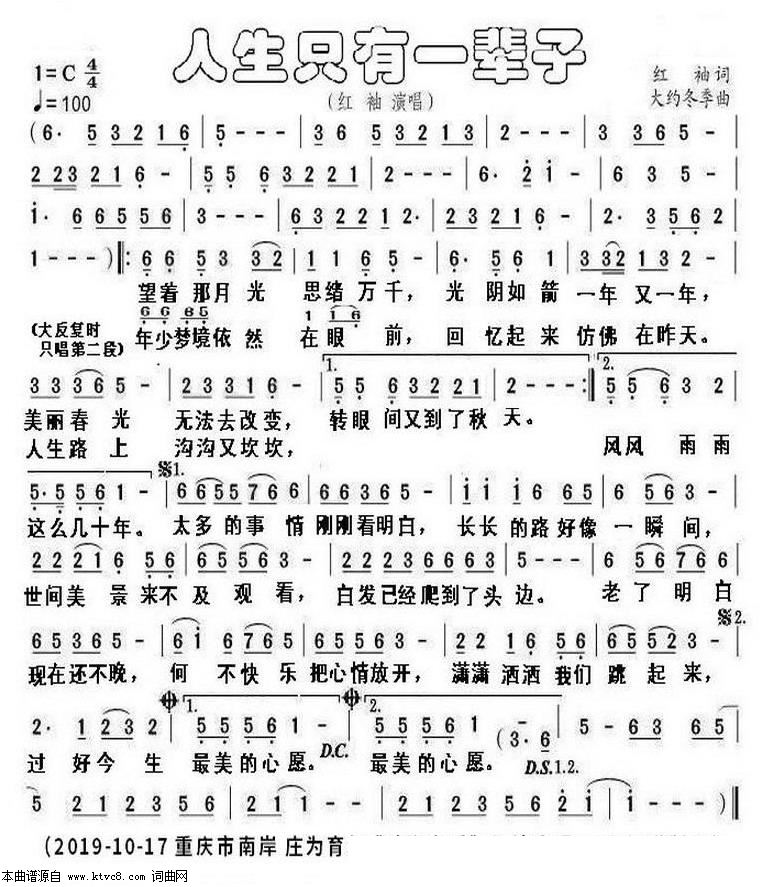 人生只有一辈子
1=C 4/4
♩=100
(红 袖 演唱)
红 袖 词
大约冬季 曲
(6· 5 3 2 1 6 | 5 - - - | 3 6 5 3 2 1 3 | 2 - - - |
2 2 3 2 1 6 - | 5 5 6 3 2 2 1 | 2 - - - | 6· 2 i - | 6 3 5 - |
i· 6 6 5 5 6 | 3 - - - | 6 3 2 2 1 2· | 2 - - - | 6· 2 i - | 2· 3 5 6 2 |
1 - - - ) ‖: 6 6 5 3 3 2 | 1 1 6 5 - | 6· 5 3 0 5 | 3 3 2 1 3 2 - |
望着 那月 光 思绪 万千, 光 阴如 箭 一年 又一年,
(大反复时只唱第二段)
6 6 5 5
1 1 6
年少梦境依 然 在眼 前, 回 忆起 来 仿佛 在昨天。
1.
2.
3 3 3 6 5 - | 2 3 3 1 6 - | 5 5 6 3 2 2 1 | 2 - - - :‖ 5 5 6 3 2 |
美丽春 光 无法去改变, 转眼 间又到了秋 天。
人生路 上 沟沟又坎坎, 风风 雨雨
𝄋1.
5· 5 5 6 1 - | 6 6 5 5 7 6 6 | 6 6 3 6 5 - | i i i 6 6 5 | 6 5 6 3 - |
这么几十年。 太多 的事 情 刚刚看明白, 长长 的路 好像 一 瞬 间,
2 2 2 1 6 5 6 | 6 5 5 6 3 - | 2 2 2 3 6 6 6 3 | 5 - - - | 6 5 6 7 6 6 |
世间美 景 来不 及 观 看, 白发已经爬到了头 边。 老了 明白
𝄋2.
6 5 3 6 5 - | 6 i 6 7 6 5 | 6 5 3 6 5 - | 2 2 1 6 5 6 | 6 5 5 2 3 - |
现在还不晚, 何 不快乐 把心情放开, 潇潇 洒洒 我们 跳 起 来,
1.
2.
2· 1 2 3 2 | 5 5 5 6 1 - | 5 5 5 6 1 - (3· 6 | 5 - 6 3 | 6 5 - 5 |
过 好今 生 最美的心愿。 D.C. 最美的心愿。 D.S.1.2.
5 2 1 2 3 5 6 | 2 1 2 3 5 6 | 2 1 2 3 5 6 | 2 i - i | i - - - ) ‖
(2019-10-17 重庆市南岸 庄为育
本曲谱源自 www.ktvc8.com 词曲网